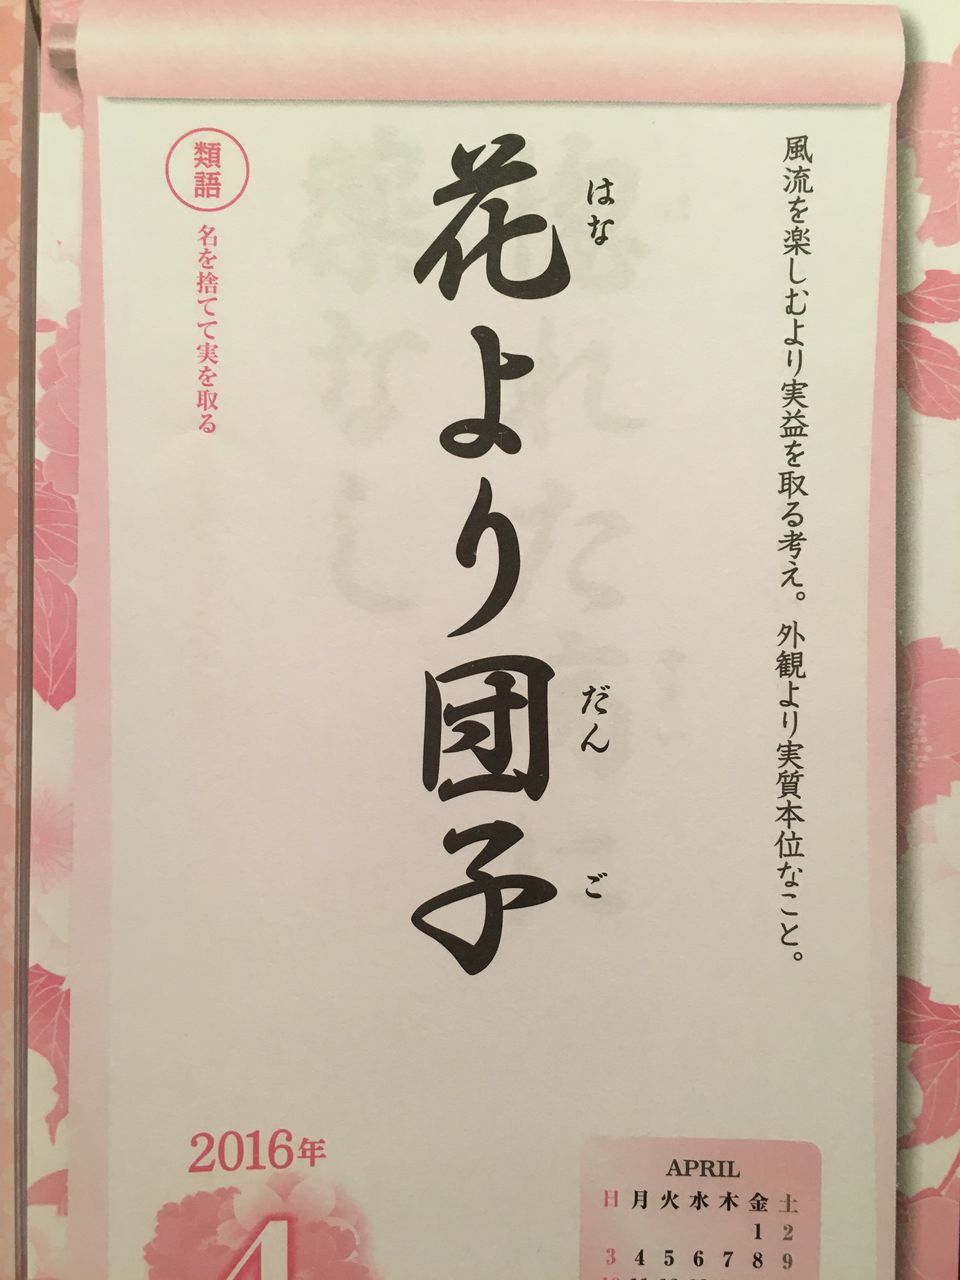 風流を楽しむより実益を取る考え。外観より実質本位なこと。
はな だん ご
花より団子
類語 名を捨てて実を取る
2016年
4
APRIL
日 月 火 水 木 金 土
1 2
3 4 5 6 7 8 9